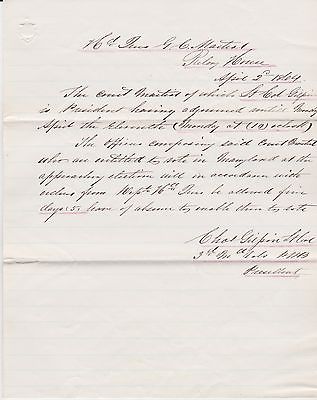 Hd Qrs G. C. Martial
Relay House
April 2d 1864.
The Court Martial of which Lt Col Gilpin
is President having adjourned until Monday
April the Eleventh (Monday at (10) o'clock)
The officers composing said Court Martial
who are entitled to vote in Maryland at the
approaching election will in accordance with
orders from Dept Hd Qrs be allowed five
days (5) leave of absence to enable them to vote
Chas Gilpin Lt Col
3d Md Vols
President